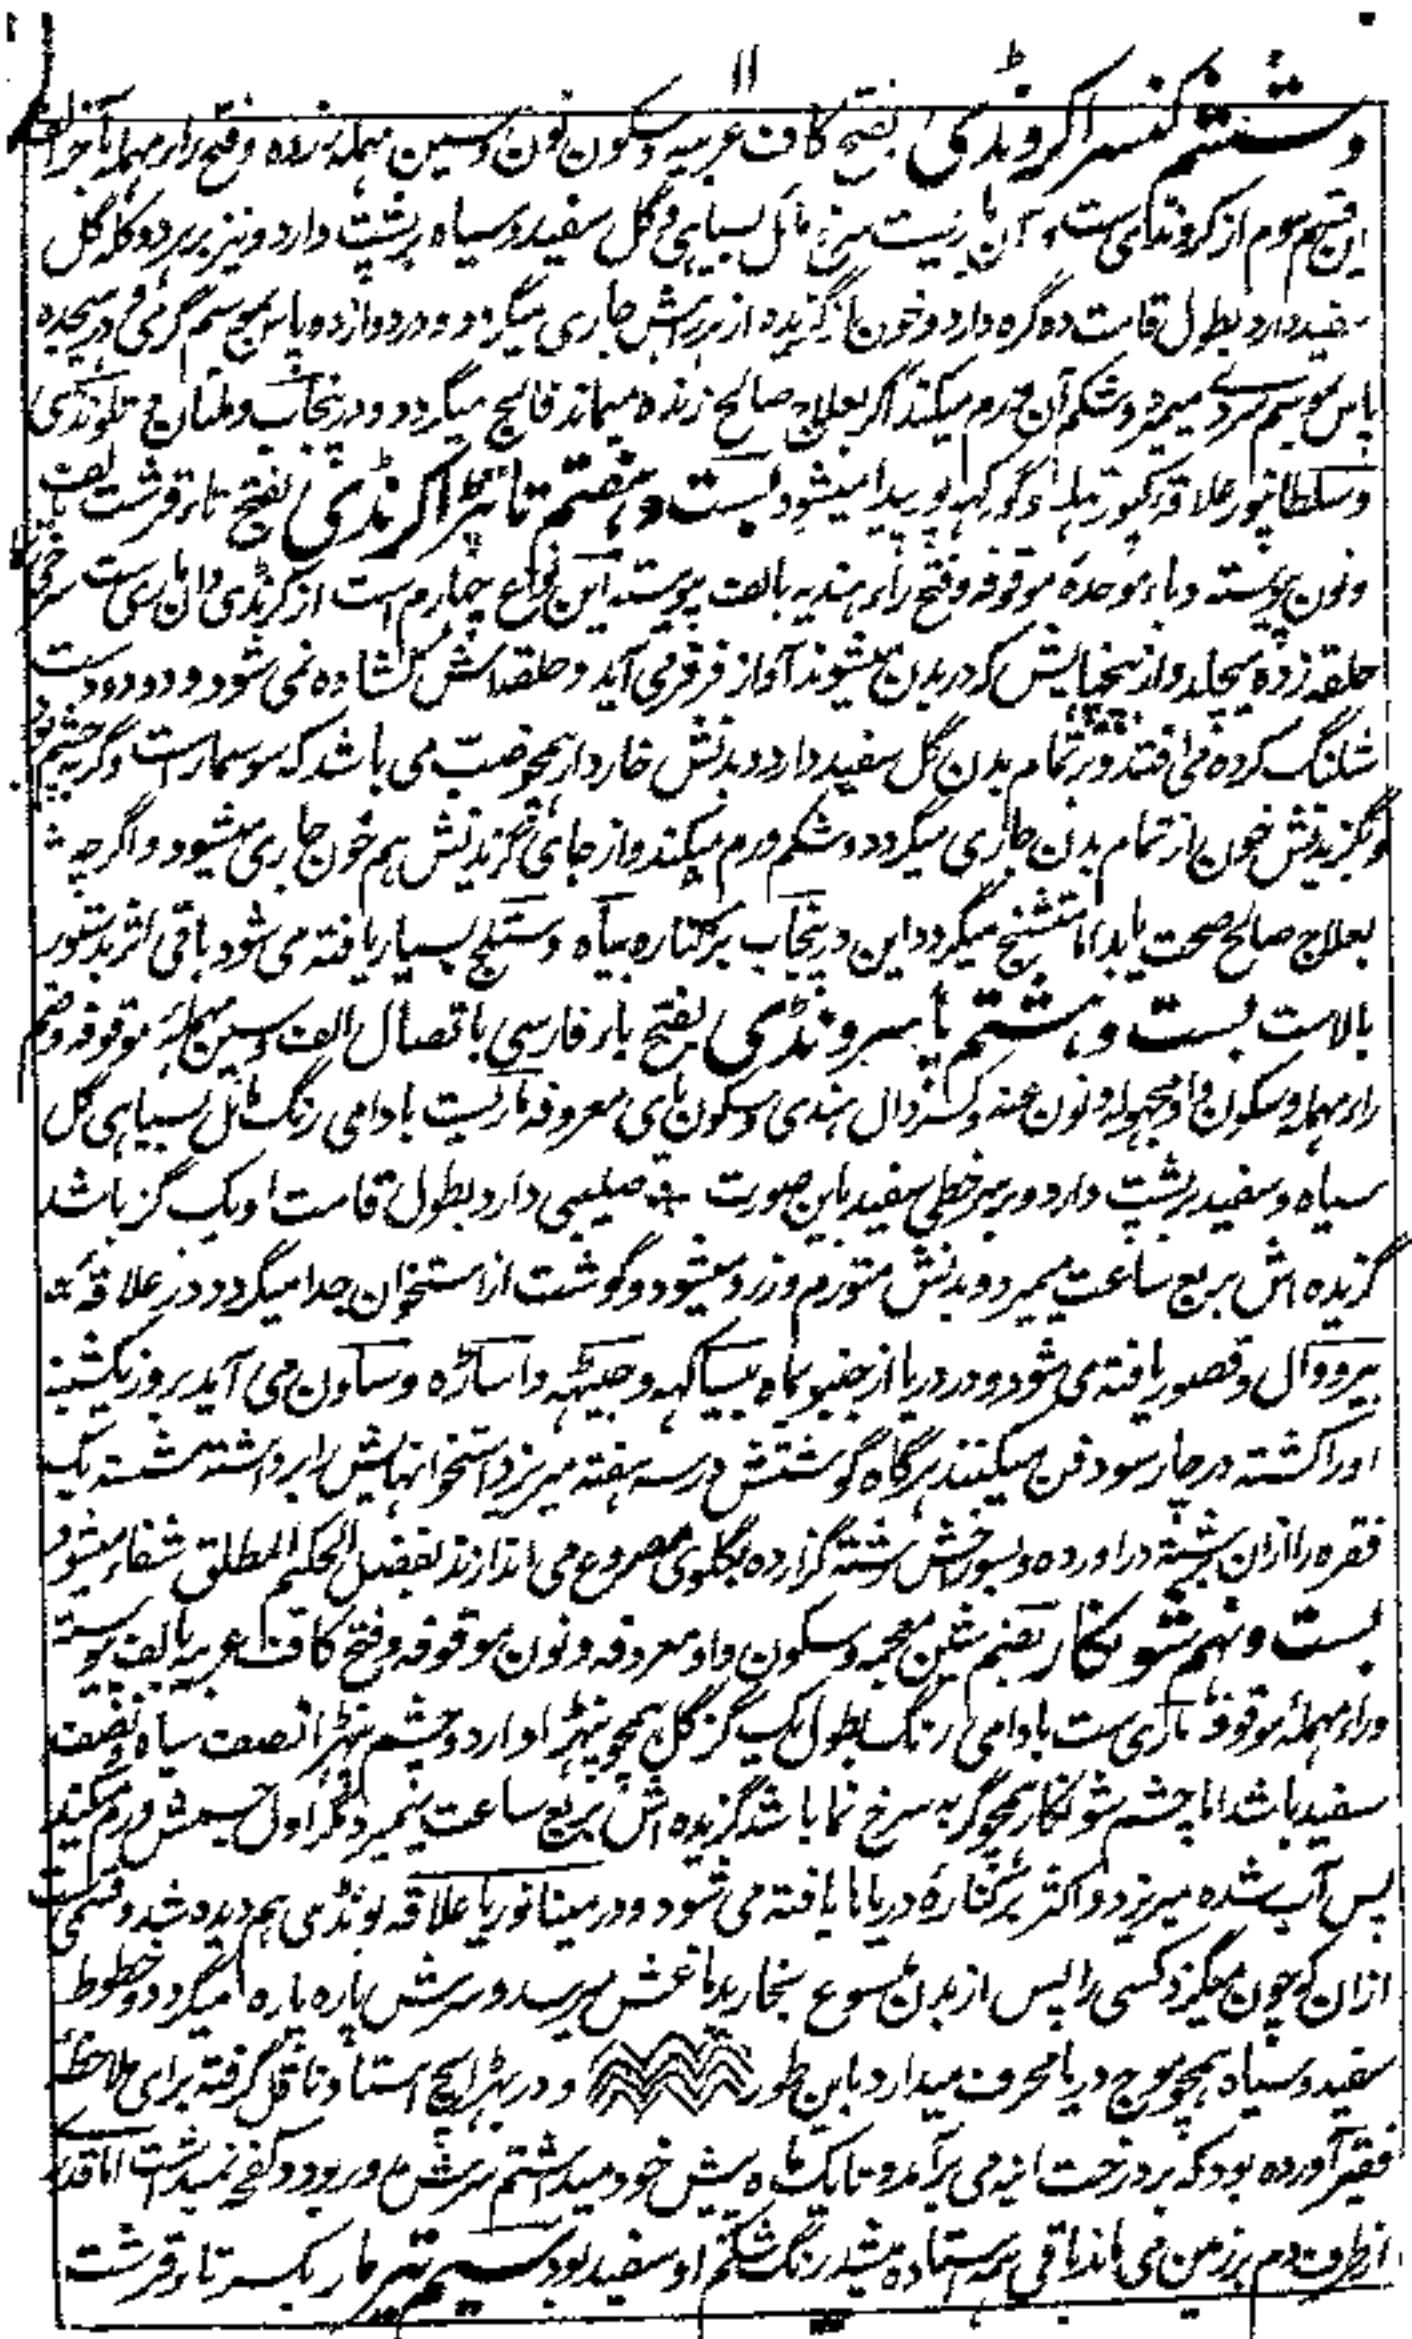 ۱۱
وششم کنسرا کروندی بفتح کاف عربیه وسکون نون وسین مهمله زده وفتح راء مهمله بآخر الف
این قسم سوم از کروندی ست و آن ماریست سرخ مائل بسیاهی و گل سفید و سیاه بر پشت دارد و نیز بر هر دو کله گل
سفید دارد بطول قامت ده گره دارد و خون از گزیده از سرش جاری میگردد و در دوازده پاس بموسم گرمی و در هیجده
پاس بموسم سردی میمیرد و شکم آن ورم میکند اگر بعلاج صالح زنده میماند فالج میگردد و در پنجاب و ملتان و تلوندی
وسلطانپور علاقه کپورتهله و گورکهپور پیدا میشود بست و هفتم تانبڑا کرنڈی بفتح تاء قرشت بالف
ونون پیوسته وباء موحده موقوفه وفتح راء هندیه بالف پیوسته این نوع چهارم است از کرنڈی وآن ماری ست سرخ رنگ
حلقه زده میچلد و از سنجهایش که در بدن میشوند آواز فرفر می آید و حلقه اش کشاده نمی شود و دو دو دست
شلنگ کرده می افتد و بر تمام بدن گل سفید دارد و بدنش خاردار همچو ضب می باشد که سوسمار است و گربه چشم بود
وبگزیدنش خون از تمام بدن جاری میگردد و شکم ورم میکند و از جای گزیدنش هم خون جاری میشود و اگرچه
بعلاج صالح صحت یابد اما متشنج میگردد این در پنجاب بر کناره بیاه و ستلج بسیار یافته می شود باقی اثر بدستور
بالاست بست و هشتم پاسروندی بفتح باء فارسی باتصال الف وسین مهمله موقوفه وضم
راء مهمله وسکون واو مجهوله ونون غنه وکسر دال هندی وسکون یای معروفه ماریست بادامی رنگ مائل بسیاهی گل
سیاه و سفید بر پشت دارد و بر سر خطی سفید باین صورت ⁜ صلیبی دارد بطول قامت او یک گز باشد
گزیده اش بربع ساعت میمیرد و بدنش متورم و زرد میشود و گوشت از استخوان جدا میگردد در علاقه
بیرووال و قصور یافته می شود و در دریا از جنوب بماه بیساکهه و جیٹهه و اساڑه و ساون می آید بروز یکشنبه
اورا کشته در چارسو دفن میکنند هرگاه گوشتش در سه هفته میریزد استخوانهایش را برداشته شسته یک
فقره را ازان برشته در آورده و بسوراخش رشته گزارده بگلوی مصروع می اندازند بفضل الحکیم المطلق شفاء میشود
بست و نهم شونکار بضم شین معجمه وسکون واو معروفه ونون موقوفه وفتح کاف عربیه بالف پیوسته
وراء مهمله موقوفه ماری ست بادامی رنگ بطول یک گز گل همچو نپڑا او دارد و چشم نپڑا نصف سیاه ونصف
سفید باشد اما چشم شونکار همچو گربه سرخ نما باشد گزیده اش بربع ساعت بمیرد مگر اول جسمش ورم میکند
پس آب شده میریزد و اکثر بر کناره دریاها یافته می شود و در مینانوریا علاقه بونڈی هم دیده شد و قسمی ست
ازان که چون میگزد کسی را پس از بدن ملسوع بخار پدید غش میرسد و سرش پاره پاره میگردد و خطوط
سفید و سیاه همچو موج دریا محرف میدارد باین طور و در بهڑایچ استاد ناقل گرفته برای ملاحظه
فقیر آورده بود که بر درخت انبه می برآمد و تا یک ماه پیش خود میداشتم سرش مدور بود و کفچه نمیداشت اما قدری
از طرف دم بر زمین می ماند باقی همه استاده میشد رنگ شکم او سفید بود سیم تیر مار بکسر تاء قرشت